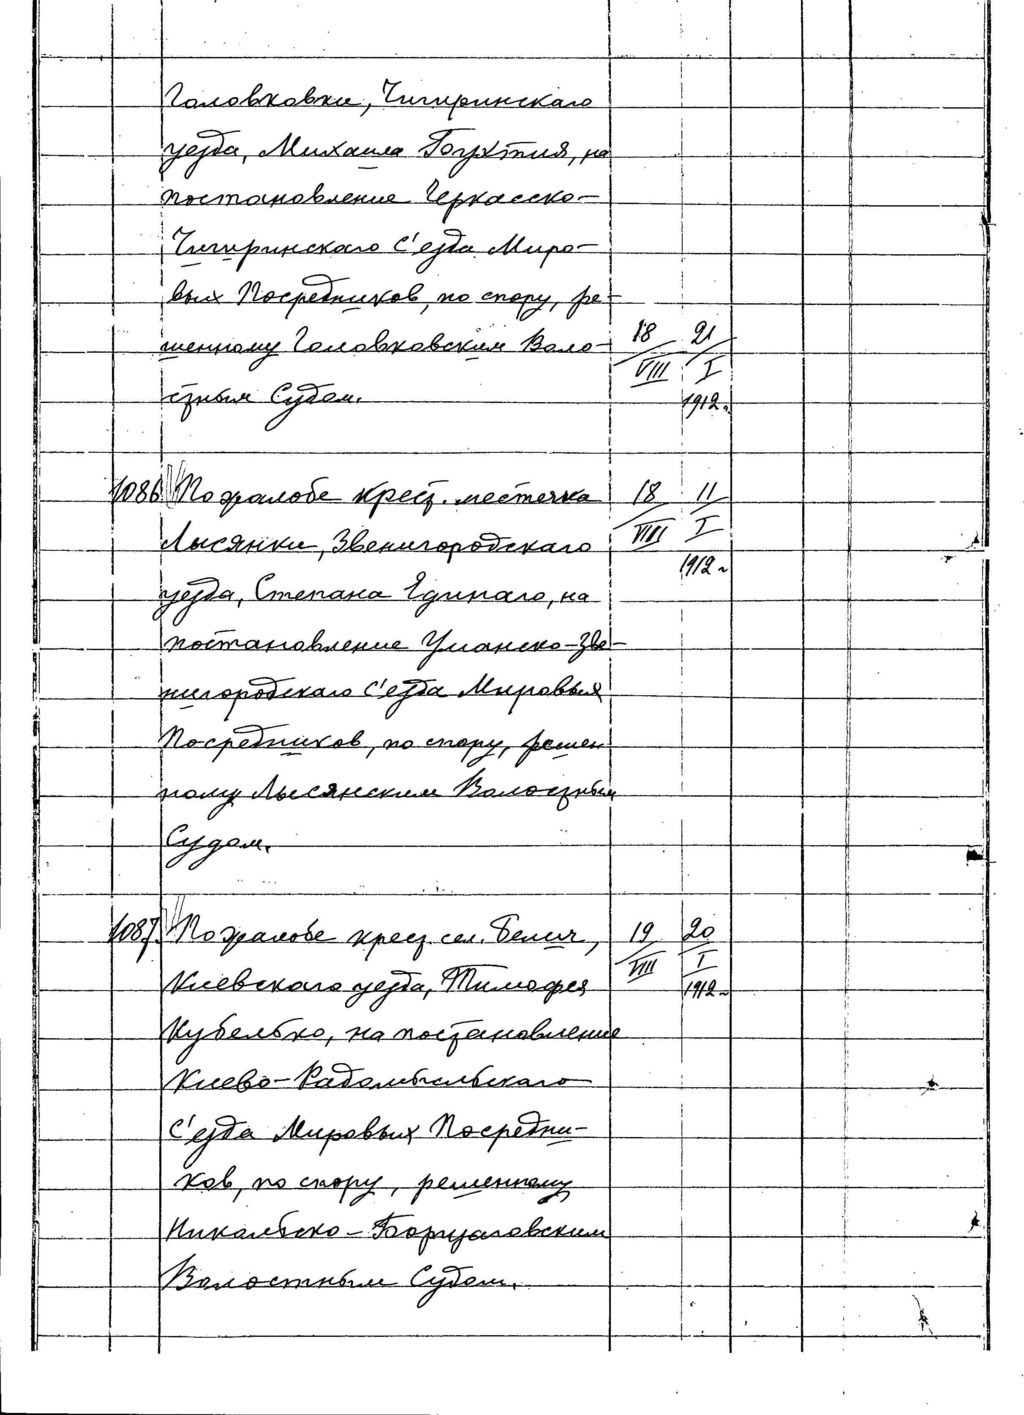 Головковки, Чигиринскаго
уезда, Михаила Богухтия, на
постановление Черкасско-
Чигиринскаго С'езда Миро-
вых Посредников, по спору, ре-
шенному Головковским Воло- 18/VIII 21/I
стным Судом. 1912г.
1086. По жалобе крест. местечка 18/VIII 11/I
Лысянки, Звенигородскаго 1912г
уезда, Степана, на
постановление Уманско-Зве-
нигородскаго С'езда Мировых
Посредников, по спору, решен
ному Лысянским Волостным
Судом.
1087. По жалобе крест. сел. Белич, 19/VIII 20/I
Киевскаго уезда, Тимофея 1912г
Кубелько, на постановление
Киево-Радомысльскаго
С'езда Мировых Посредни-
ков, по спору, решенному
Никольско-Борщаговским
Волостным Судом.